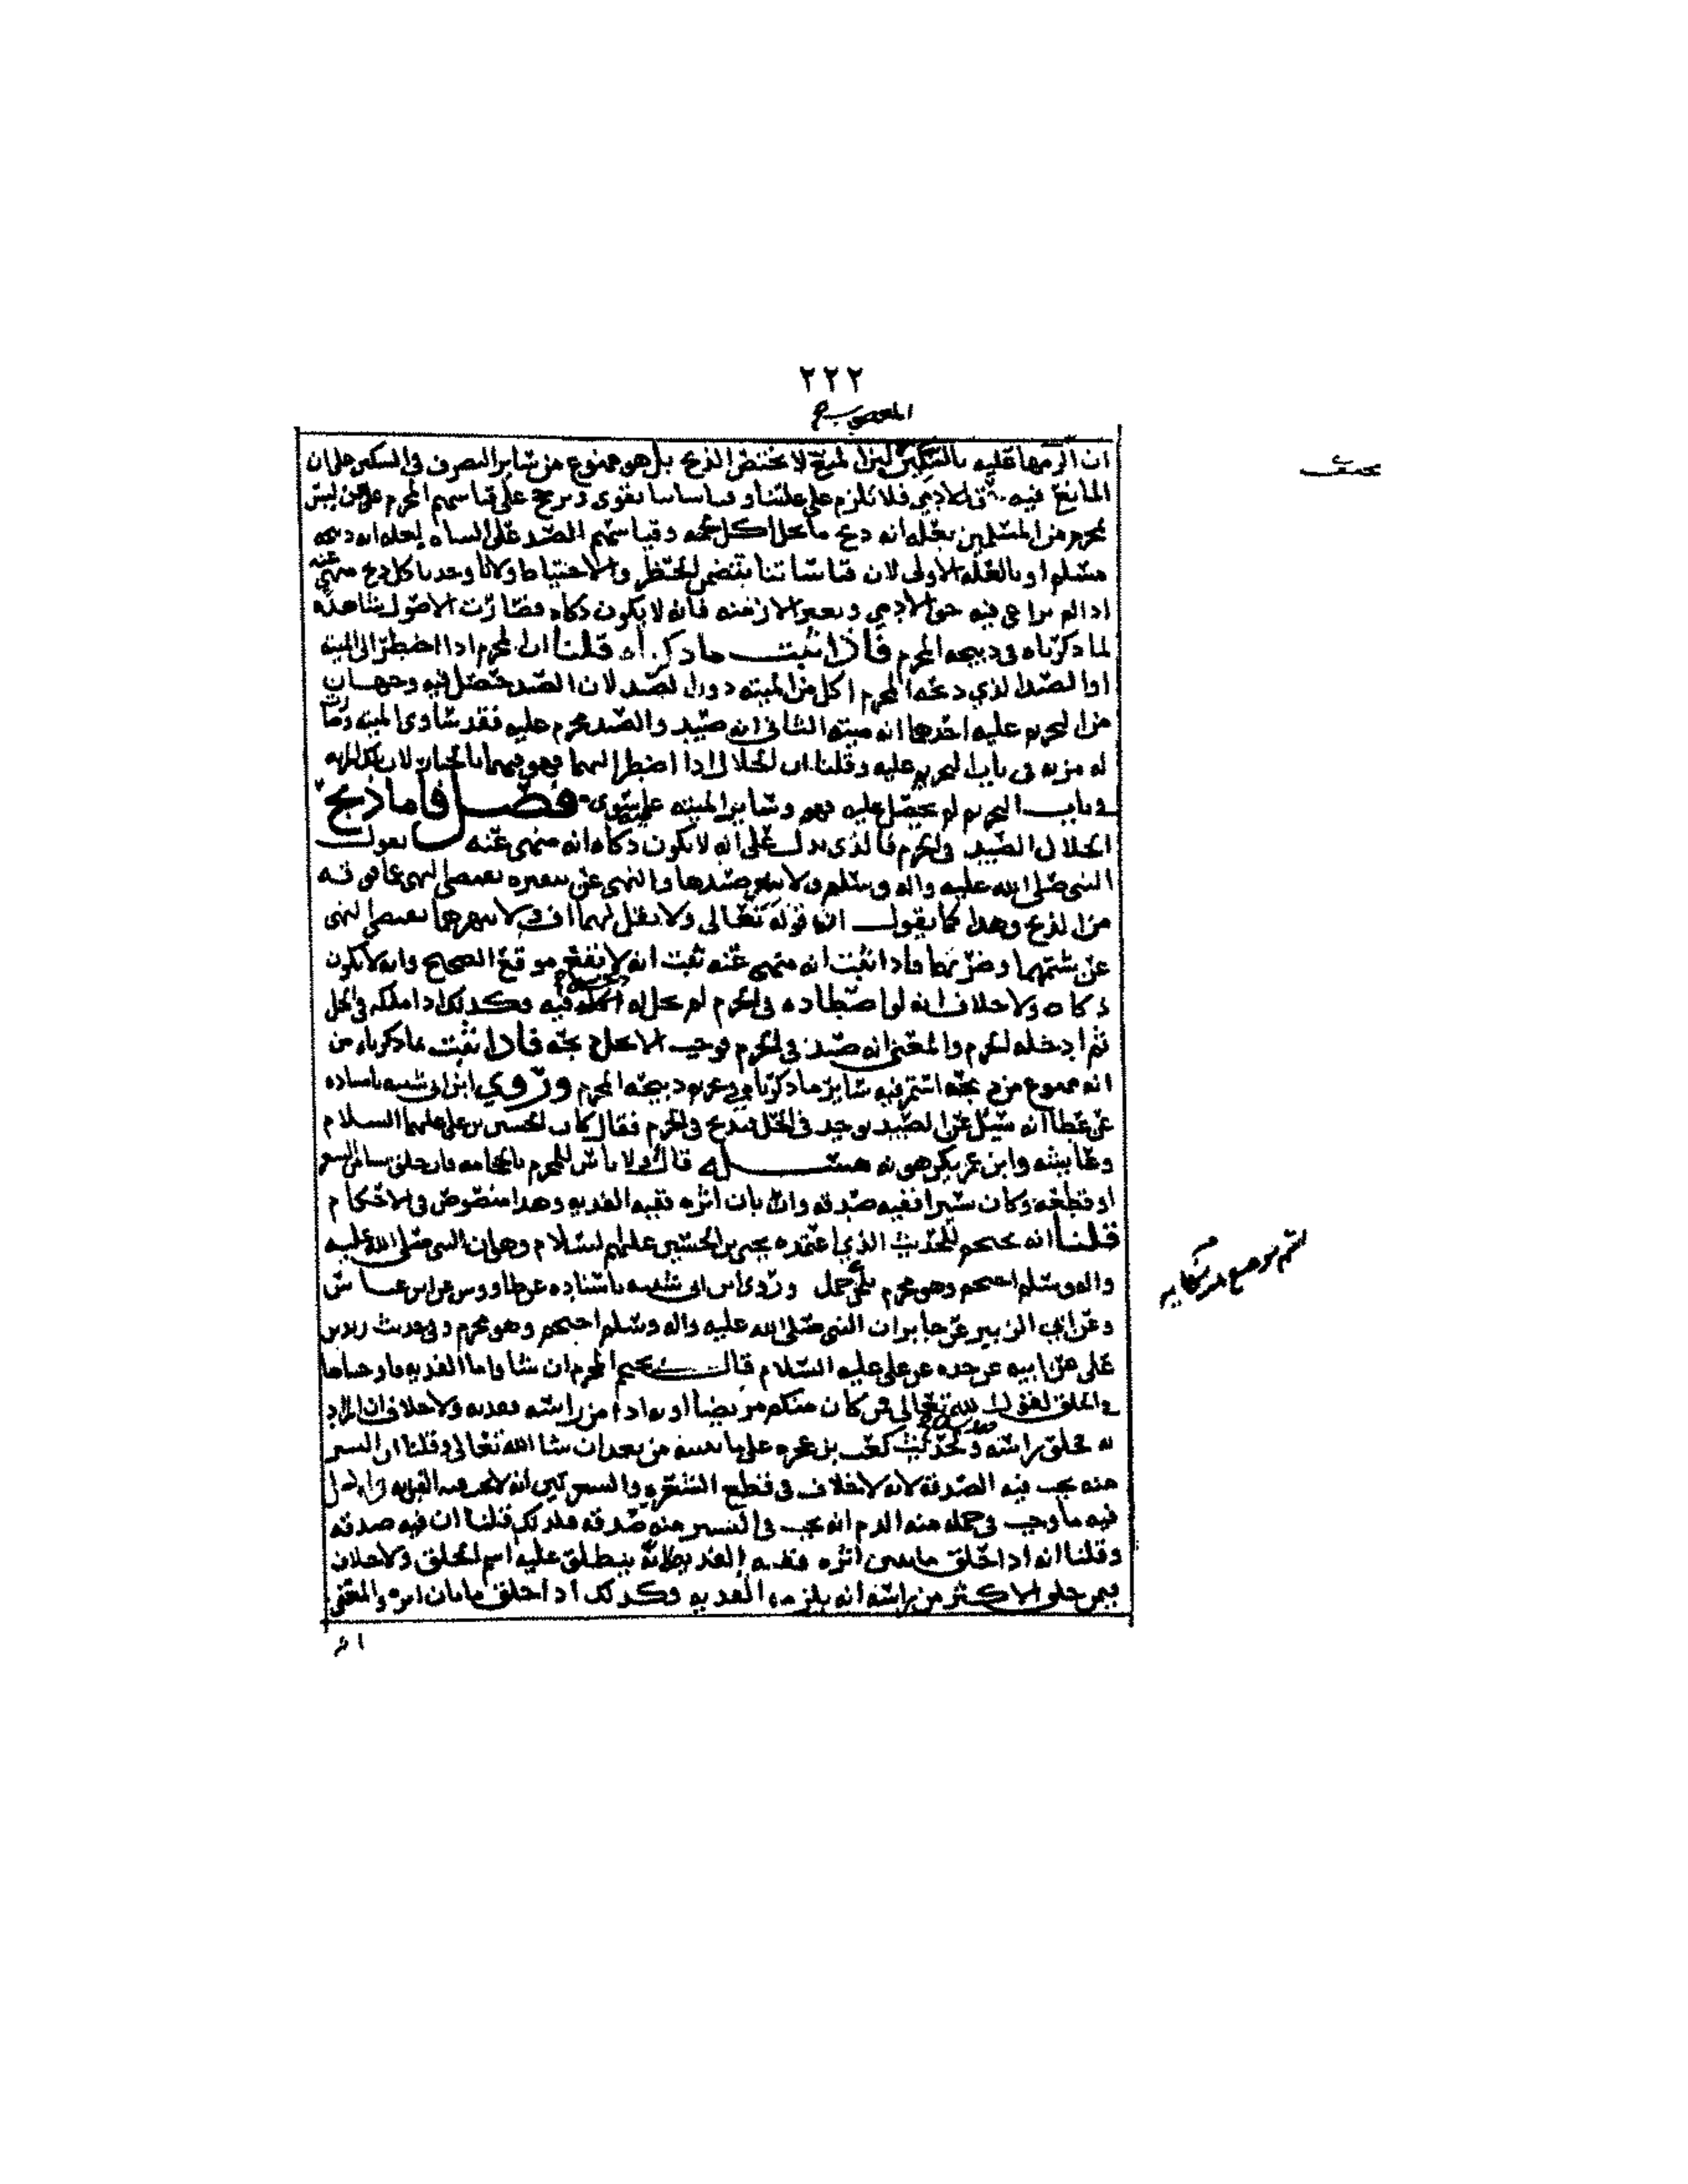 ٢٢٢
ان الزمها عليه بالسكين لان المنع لا يختص الذبح بل هو ممنوع من سائر التصرف في السكين على ان
المانع فيه حق الادمي فلا تلزم على علتنا وقياساتنا تقوى وترجح على قياسهم المحرم على من ليس
بمحرم من المسلمين بعلة انه ذبح ما يحل اكل لحمه وقياسهم الصيد على الساه بعله انه ذبحه
مسلم او بالعلة الاولى لان قياساتنا تقتضي الحظر والاحتياط ولانا وجدنا كل ذبح منهي عنه
اذا لم يراعى فيه حق الادمي وبعض الازمنه فانه لا يكون ذكاه فصارت الاصول شاهده
لما ذكرناه في ذبيحه المحرم فاذا ثبت ما ذكرناه قلنا ان المحرم اذا اضطر الى الميته
او الصيد الذي ذبحه المحرم اكل من الميته دون الصيد لان الصيد حصل فيه وجهان
من التحريم عليه احدهما انه ميته الثاني انه صيد والصيد محرم عليه فقد ساوى الميته وزادت
له مزيه في باب التحريم عليه وقلنا ان الحلال اذا اضطر اليهما فهو فيهما بالخيار لان
في باب التحريم لم يحصل عليه فهو وسائر الميته على سوى فصل فاما ذبح
الحلال الصيد في الحرم فالذي يدل على انه لا يكون ذكاه انه منهي عنه لقول
النبي صلى الله عليه واله وسلم ولا ينفر صيدها والنهي عن تنفيره يقتضي النهي عما فوقه
من الذبح وهذا كما يقول ان قوله تعالى ولا تقل لهما اف ولا تنهرهما يقتضي النهي
عن شتمهما وضربهما فاذا ثبت انه منهي عنه ثبت انه لا يقع موقع الصحاح وانه لا يكون
ذكاه ولا خلاف انه لو اصطاده في الحرم لم يحل له اكله فيه وكذلك اذا ملكه في الحل
ثم ادخله الحرم والمعنى انه صيد في الحرم فوجب الا يحل ذبحه فاذا ثبت ما ذكرناه من
انه ممنوع من ذبحه استمر فيه سائر ما ذكرناه في تحريم ذبيحه المحرم وروى ابن ابي شيبه باسناده
عن عطا انه سئل عن الصيد يوجد في الحل فيذبح في الحرم فقال كان الحسين بن علي عليهما السلام
وعايشه وابن عمر يكرهونه مسئلة قال ولا باس للمحرم بالحجامه فان حلق بها من الشعر
او قطعه وكان يسيرا ففيه صدقه وان بان اثره ففيه الفديه وهذا منصوص في الاحكام
قلنا انه يحتجم للحديث الذي اعتمده يحيى بن الحسين عليهم السلام وهو ان النبي صلى الله عليه
واله وسلم احتجم وهو محرم بلحي جمل وروى ابن ابي شيبه باسناده عن طاووس عن ابن عباس
وعن ابي الزبير عن جابر ان النبي صلى الله عليه واله وسلم احتجم وهو محرم وفي حديث زيد بن
علي عن ابيه عن جده عن علي عليه السلام قال يحتجم المحرم ان شا واما الفديه فاوجبناها
في الحلق لقول الله تعالى فمن كان منكم مريضا او به اذى من راسه ففديه ولا خلاف ان المراد
به فحلق راسه ولحديث كعب بن عجره على ما نبينه من بعد ان شا الله تعالى وقلنا ان اليسير
منه يجب فيه الصدقه لانه لا خلاف في قطع الشعره والشعرتين انه لا يجب فيه الفديه
فيه ما وجب في جمله منه الدم انه يجب في اليسير منه صدقه فلذلك قلنا ان فيه صدقه
وقلنا انه اذا حلق ما يبين اثره ففيه الفديه لانه ينطلق عليه اسم الحلق ولا خلاف
فيمن حلق الاكثر من راسه انه يلزمه الفديه وكذلك اذا حلق ما بان اثره والمعنى